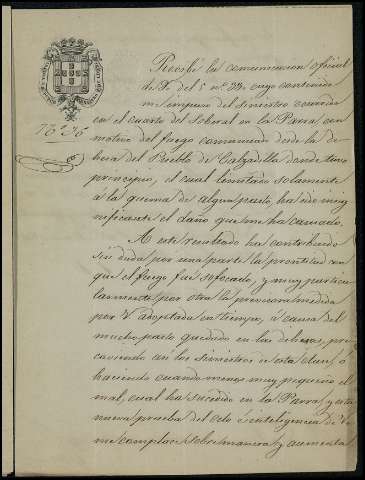 Nº 36
Recibí la comunicacion oficial
de V. del 5 nº 22 cuyo contenido
me impuso del siniestro ocurrido
en el cuarto del Soberal en la Parra, con
motivo del fuego comunicado desde la de-
hesa del Pueblo de Calzadilla donde tuvo
principio, el cual limitado solamente
á la quema de algun pasto, ha sido insig-
nificante el daño que me ha causado.
A este resultado ha contribuido
sin duda por una parte la prontitud con
que el fuego fué sofocado, y muy particu-
larmente por otra la previsora medida
por V adoptada en tiempo, á causa del
mucho pasto quedado en las dehesas, pre-
caviendo asi los siniestros de esta clase, ó
haciendo cuando menos muy pequeño el
mal, cual ha sucedido en la Parra, y esta
nueva prueba del celo é inteligencia de V.
me complace sobremanera y aumenta